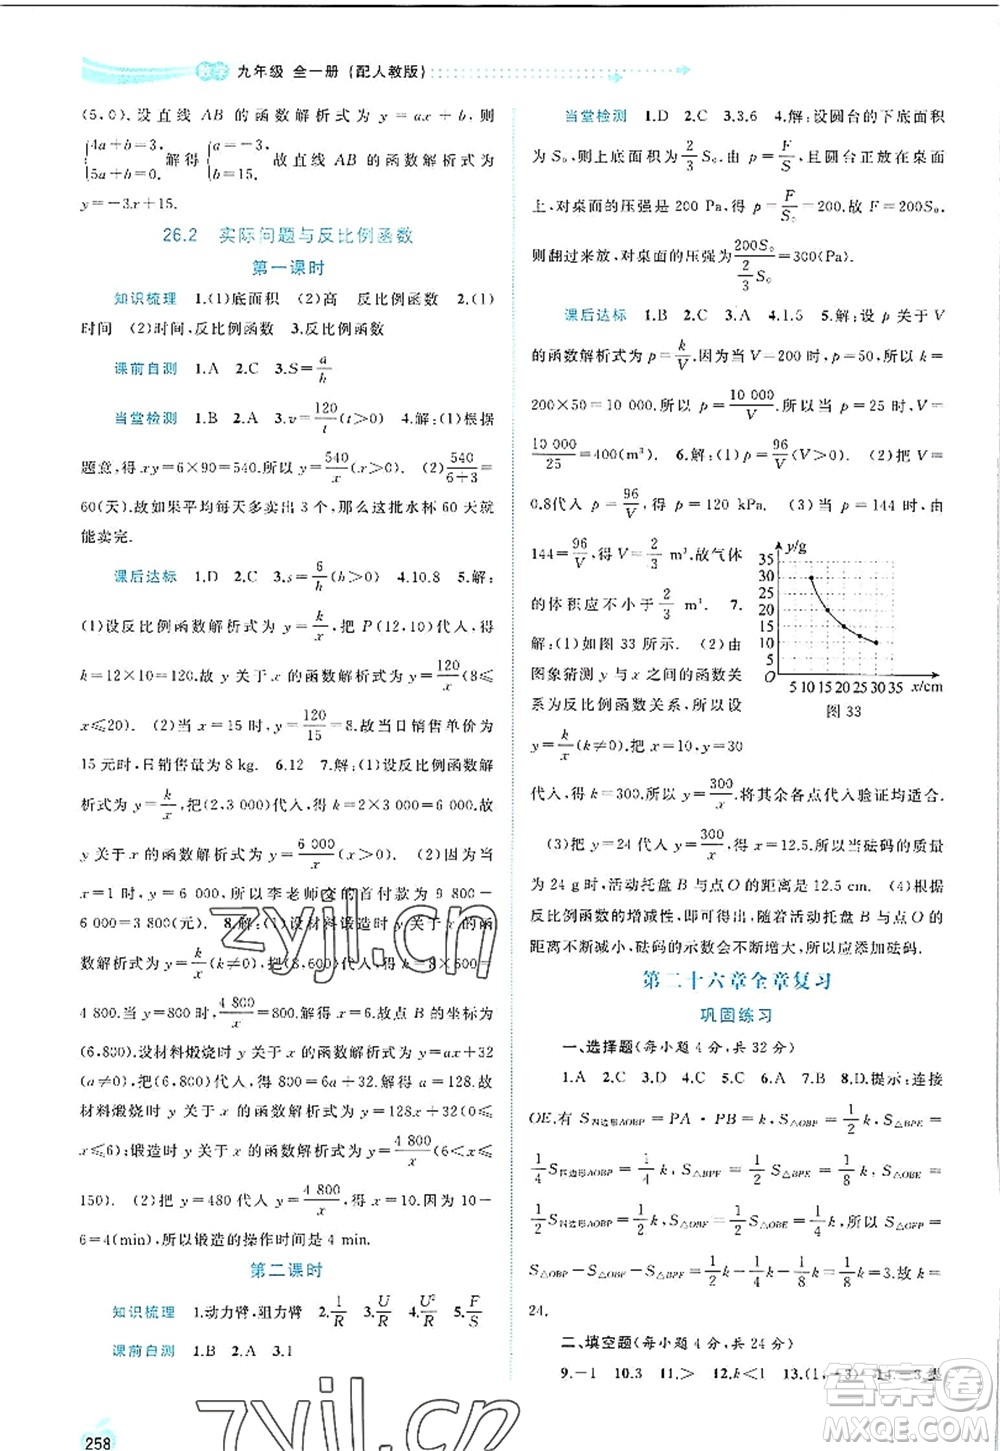 数学 九年级 全一册 (配人教版)
(5,0).设直线 AB 的函数解析式为 y=ax+b,则
{4a+b=3, 5a+b=0. 解得{a=-3, b=15. 故直线 AB 的函数解析式为
y=-3x+15.
26.2 实际问题与反比例函数
第一课时
知识梳理 1.(1)底面积 (2)高 反比例函数 2.(1)
时间 (2)时间,反比例函数 3.反比例函数
课前自测 1.A 2.C 3.S=a/h
当堂检测 1.B 2.A 3.v=120/t(t>0) 4.解:(1)根据
题意,得 xy=6×90=540.所以 y=540/x(x>0) (2)540/(6+3)=
60(天).故如果平均每天多卖出 3 个,那么这批水杯 60 天就
能卖完.
课后达标 1.D 2.C 3.s=6/h(h>0) 4.10.8 5.解:
(1)设反比例函数解析式为 y=k/x,把 P(12,10)代人,得
k=12×10=120.所以 y 关于 x 的函数解析式为 y=120/x(0<
x≤20). (2)当 x=15 时,y=120/15=8.故当日销售单价为
15 元时,日销售量为 8 kg. 6.12 7.解:(1)设反比例函数解
析式为 y=k/x,把(2,3 000)代人,得 k=2×3 000=6 000.故
y 关于 x 的函数解析式为 y=6 000/x(x>0). (2)
9 800-
所以李老师交的首付款为 9 800-
8.解:(1)设材料锻造时 y 关于 x 的
函数解析式为 y=k/x(k≠0),把(8,600)代人,得 k=
4 800.故材料锻造时 y=4 800/x.
故点 B 的坐标为
(6,800).设材料煅烧时 y 关于 x 的函数解析式为 y=ax+32
(a≠0),把(6,800)代人,得 6a+32=800.解得 a=128.故
材料煅烧时 y 关于 x 的函数解析式为 y=128x+32(0≤
x≤6);锻造时 y 关于 x 的函数解析式为 y=4 800/x(6<x≤
150). (2)把 y=480 代人 y=4 800/x,得 x=10.故 10-
6=4(min),所以锻造的操作时间是 4 min.
第二课时
知识梳理 1.动力臂,阻力臂 2.1/R 3.U/R 4.U²/R 5.F/S
课前自测 1.B 2.A 3.1
258
当堂检测 1.D 2.C 3.3.6 4.解:设圆台的下底面积
为 S₀,则上底面积为 2/3 S₀.由 p=F/S,且圆台正放在桌面
上,对桌面的压强是 200 Pa,得 p=F/S₀=200.故 F=200S₀,
则翻过来放,对桌面的压强为 200S₀/(2/3 S₀)=300(Pa).
课后达标 1.B 2.C 3.A 4.1.5 5.解:设 p 关于 V
的函数解析式为 p=k/V.因为当 V=200 时,p=50,所以 k=
200×50=10 000.所以 p=10 000/V.所以当 p=25 时,V=
10 000/25=400(m³). 6.解:(1)p=96/V(V>0) (2)把 V=
0.8代入 p=96/V,得 p=120 kPa. (3)当 p=144 时,由
144=96/V,得 V=2/3 m³.故气体
的体积应不小于 2/3 m³. 7.
解:(1)如图 33 所示. (2)由
图象猜测 y 与 x 之间的函数关
系为反比例函数关系,所以设
y=k/x(k≠0),把 x=10,y=30
代人,得 k=300.所以 y=300/x.将其余各点代入验证均适合.
(3)把 y=24 代人 y=300/x,得 x=12.5.所以当砝码的质量
为 24 g 时,活动托盘 B 与点 O 的距离是 12.5 cm. (4)根据
反比例函数的增减性,即可得出,随着活动托盘 B 与点 O 的
距离不断减小,砝码的示数会不断增大,所以应添加砝码.
y/g
35
30
25
20
15
10
5
O
5 10 15 20 25 30 35 x/cm
图 33
第二十六章全章复习
巩固练习
一、选择题(每小题 4 分,共 32 分)
1.A 2.C 3.A 4.D 5.C 6.A 7.B 8.D.提示:连接
OE.有 S四边形AOBP=PA·PB=k,S△OBP=1/2 k,S△BPF=
1/4 S四边形AOBP=1/4 k,S△OBE=
1/2 S四边形AOBP=1/2 k,
S△OBP-
=1/2 k-1/8 k-1/4 k=1/8 k=3.故 k=
24.
二、填空题(每小题 4 分,共 24 分)
9.-1 10.3 11.> 12.k<1 13.(1,-3) 14.-3
zyjl.cn
zyjl.cn
答案圈
MXQE.COM